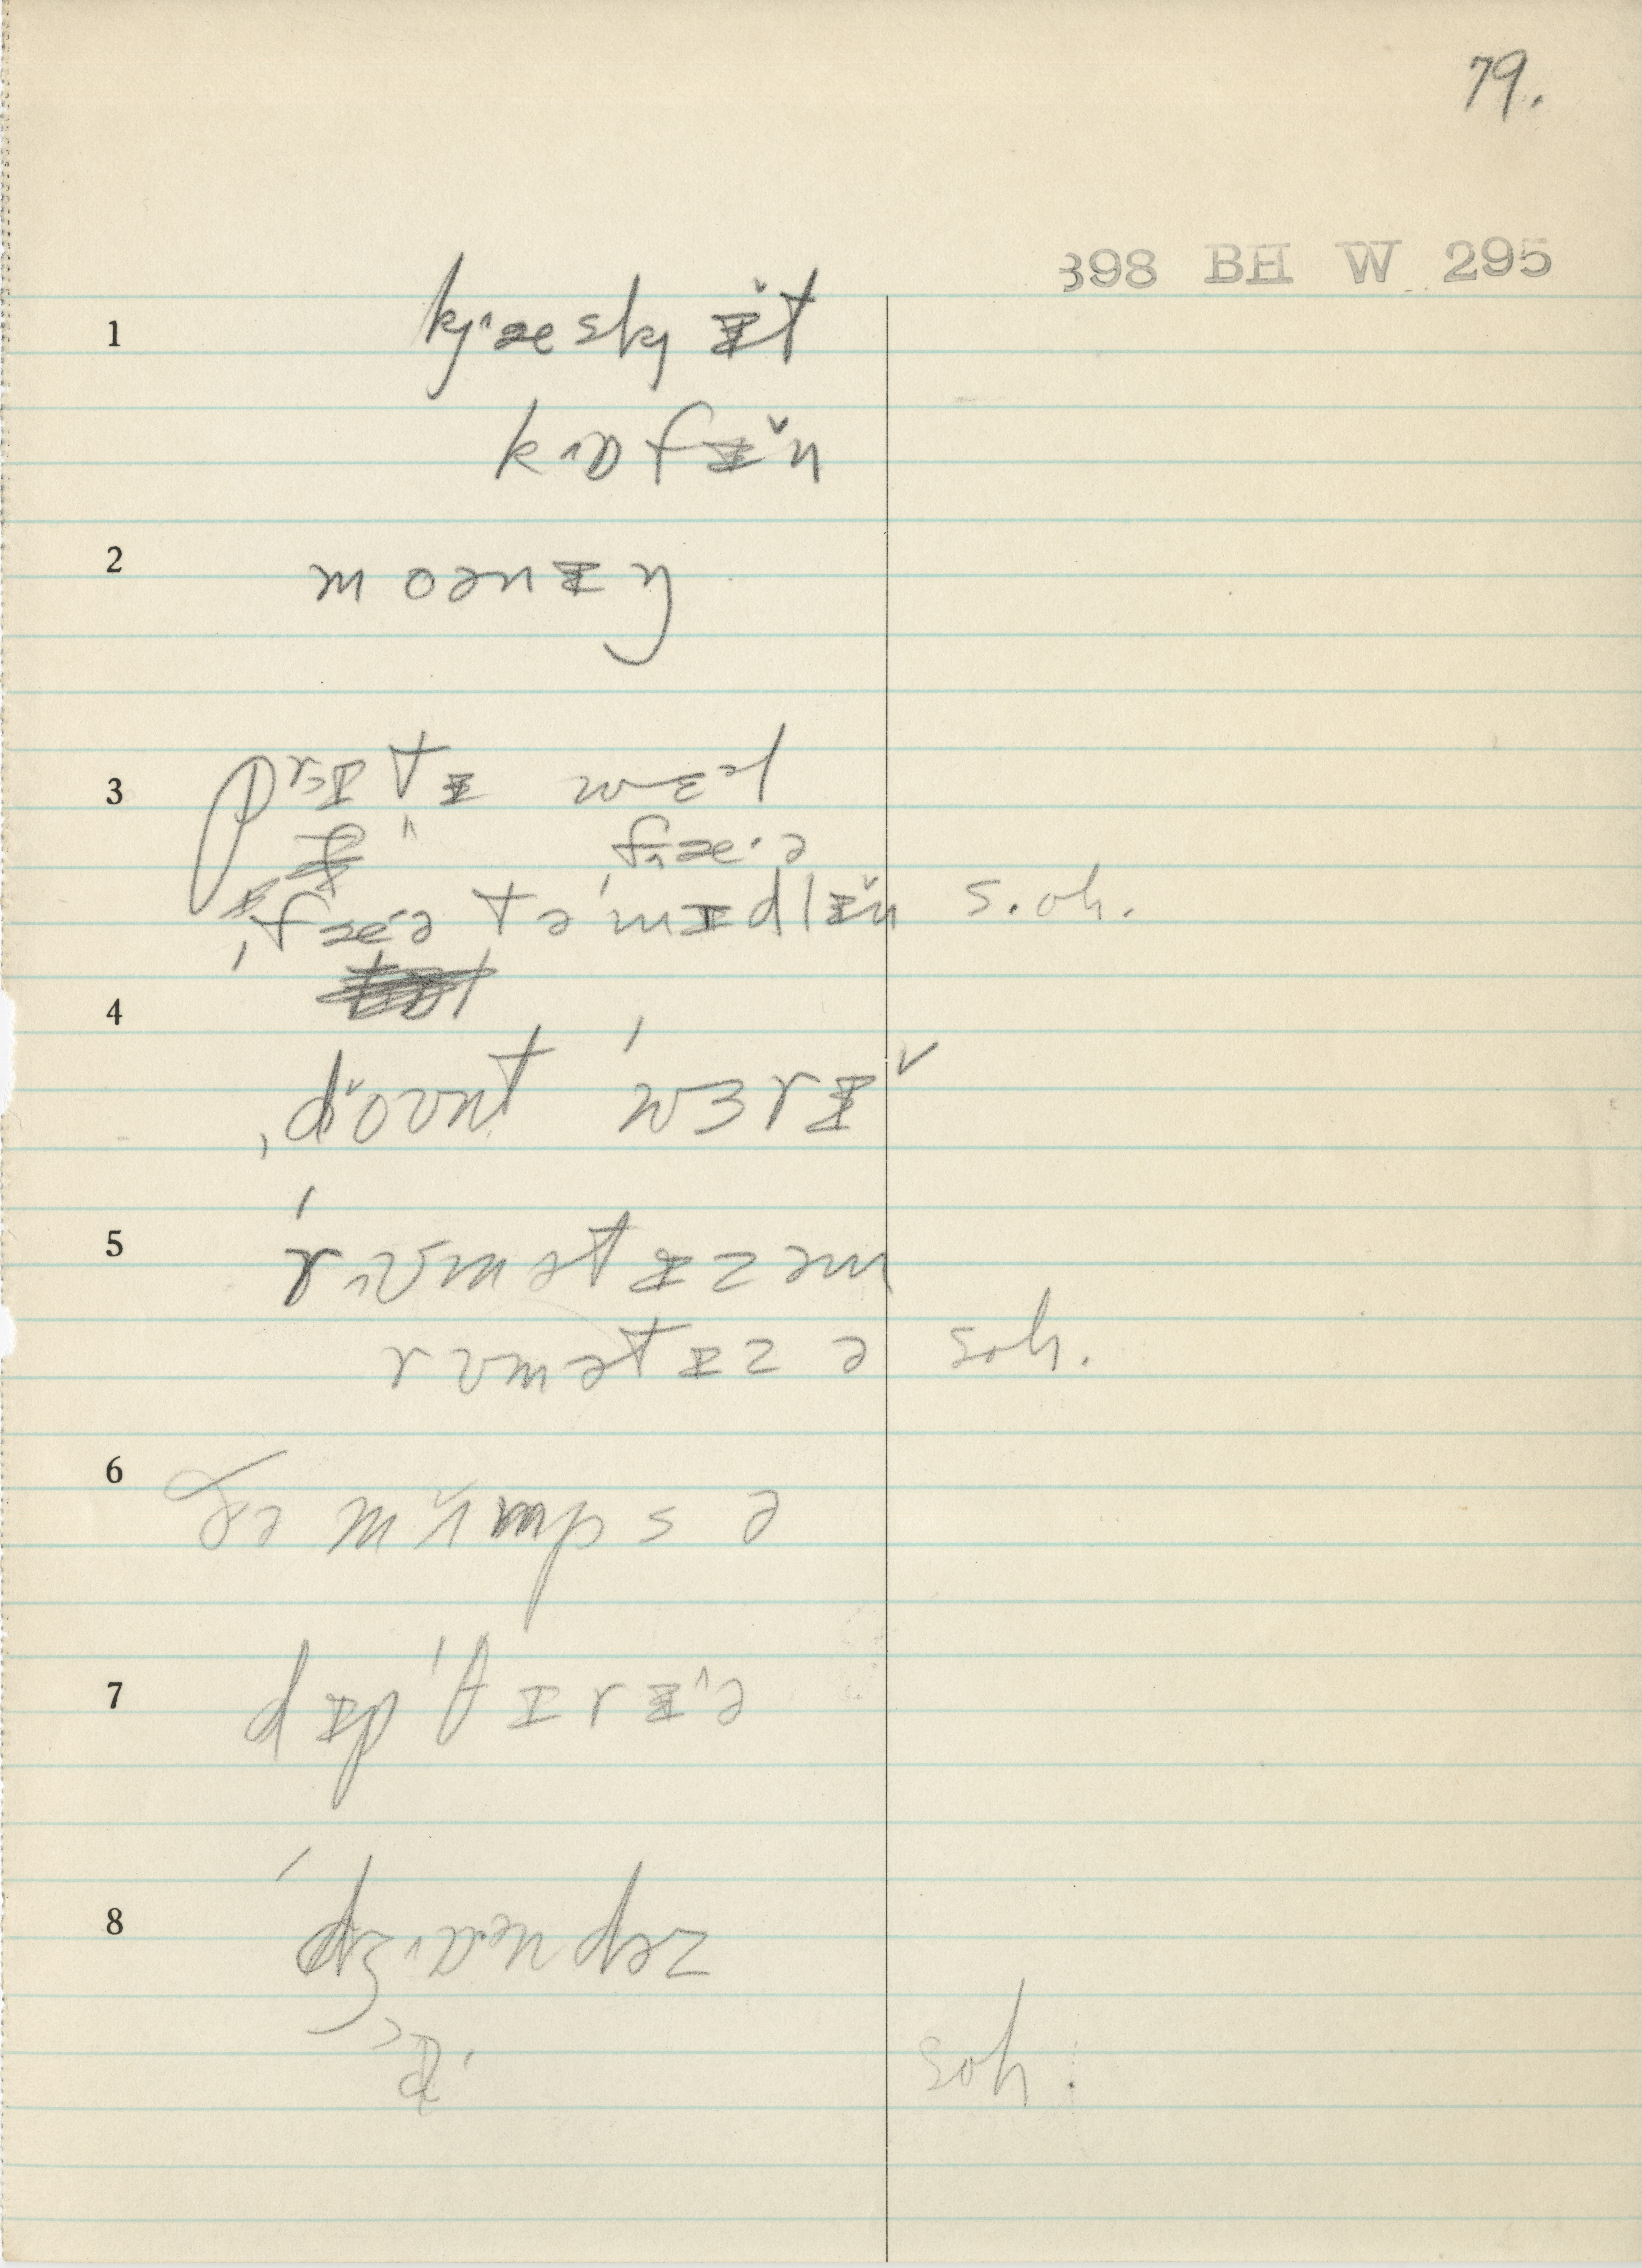 79.
398 BH W 295
1 kj˄æskj ɪ̌t
k˄ɒfɪ̌n
2 moənɪŋ
3 prɪtɪ wɛəl
f˄æ·ə
ˌfæ·ə tə ˈmɪdlɪ̌n s.oh.
4
ˌdǒʊnt ˈwɜrɪ̌
5 ˈr˄ʊmətɪzəm
rʊmətɪzə soh.
6 ðə mʌ̌mpsə
7 dɪpˈθɪrɪ˄ə
8 ˈdʒ˄ɒˑəndəz
soh.